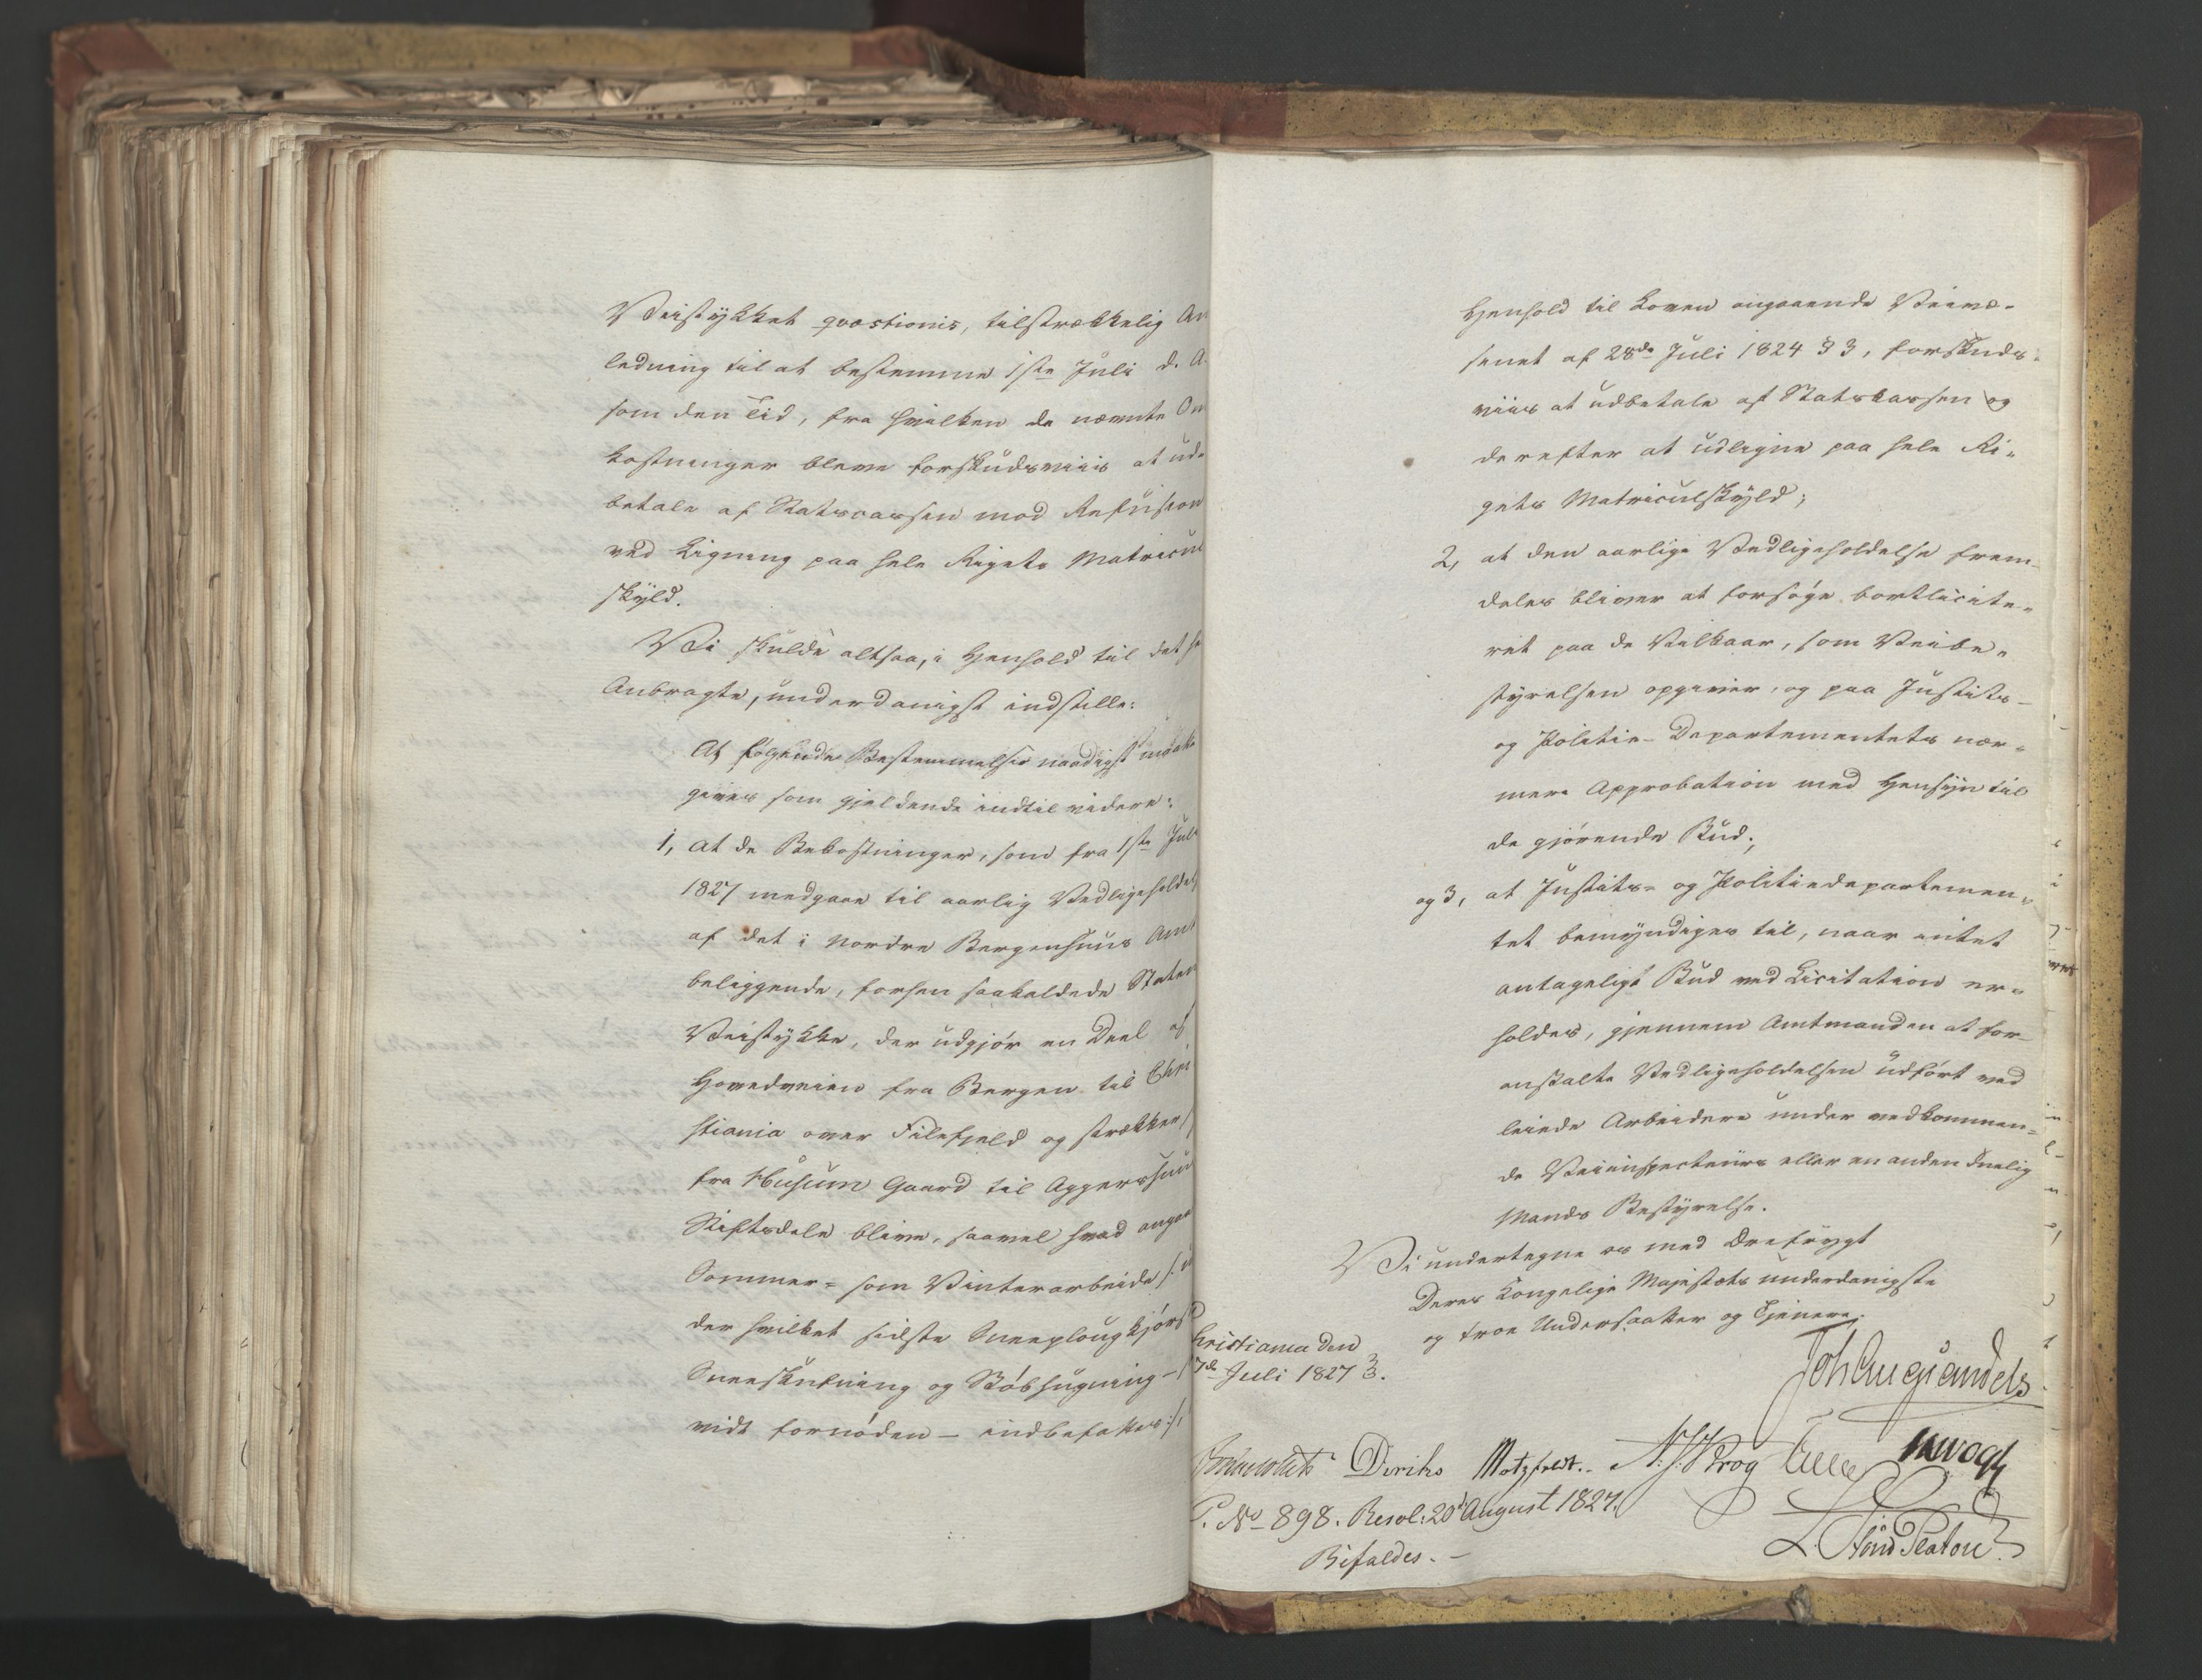 Veistykket qvæstionis, tilstrækkelig An
ledning til at bestemme 1ste Juli d. A.
som den Tid, fra hvilken de nævnte Om
kostninger bleve forskudsviis at ud-
betale af Statscassen mod Refusion
ved Ligning paa hele Rigets Matricul
skyld.
Vi skulde altsaa, i Henhold til det her
Anbragte, underdanigst indstille:
At følgende Bestemmelser naadigst maatte
gives som gjeldende indtil videre:
1, at de Bekostninger, som fra 1ste Juli
1827 medgaae til aarlig Vedligeholdelse
af det i Nordre Bergenhuus Amt
beliggende, forhen saakaldede Statens
Veistykke, der udgjør en Deel af
Hovedveien fra Bergen til Chri
stiania over Filefjeld og strækker
fra Husum Gaard til Aggershuus
Stiftsdele blive, saavel hvad angaaer
Sommer- som Vinterarbeide /: un
der hvilket sidste Sneeplougkjørsel
Sneeskuffning og
vidt fornøden - indbefattes :/,
Henhold til Loven angaaende Veivæ-
senet af 28de Juli 1824 § 3, forskuds-
viis at udbetale af Statskassen og
derefter at udligne paa hele Ri-
gets Matriculskyld;
2, at den aarlige Vedligeholdelse frem-
deles bliver at forsøge bortlicite-
ret paa de Vilkaar, som Veibe-
styrelsen opgiver, og paa Justits-
og Politie-Departementets nær-
mere Approbation med Hensyn til
de gjørende Bud;
og 3, at Justits- og Politiedepartemen-
tet bemyndiges til, naar intet
antageligt Bud ved Licitation er-
holdes, gjennem Amtmanden at for-
anstalte Vedligeholdelsen udført ved
leiede Arbeidere under vedkommen-
de Veiinspecteurs eller en anden duelig
Mands Bestyrelse.
Vi undertegne os med Ærefrygt
Deres Kongelige Majestæts underdanigste
og troe Undersaatter og Tjenere,
hristiania den
7de Juli 1827
Joh Aug Sandels
Diriks Motzfeldt. N. J. Krog Vogt
P. No 898. Resol: 20d August 1827.
Bifaldes. -
L. Stoud Platou